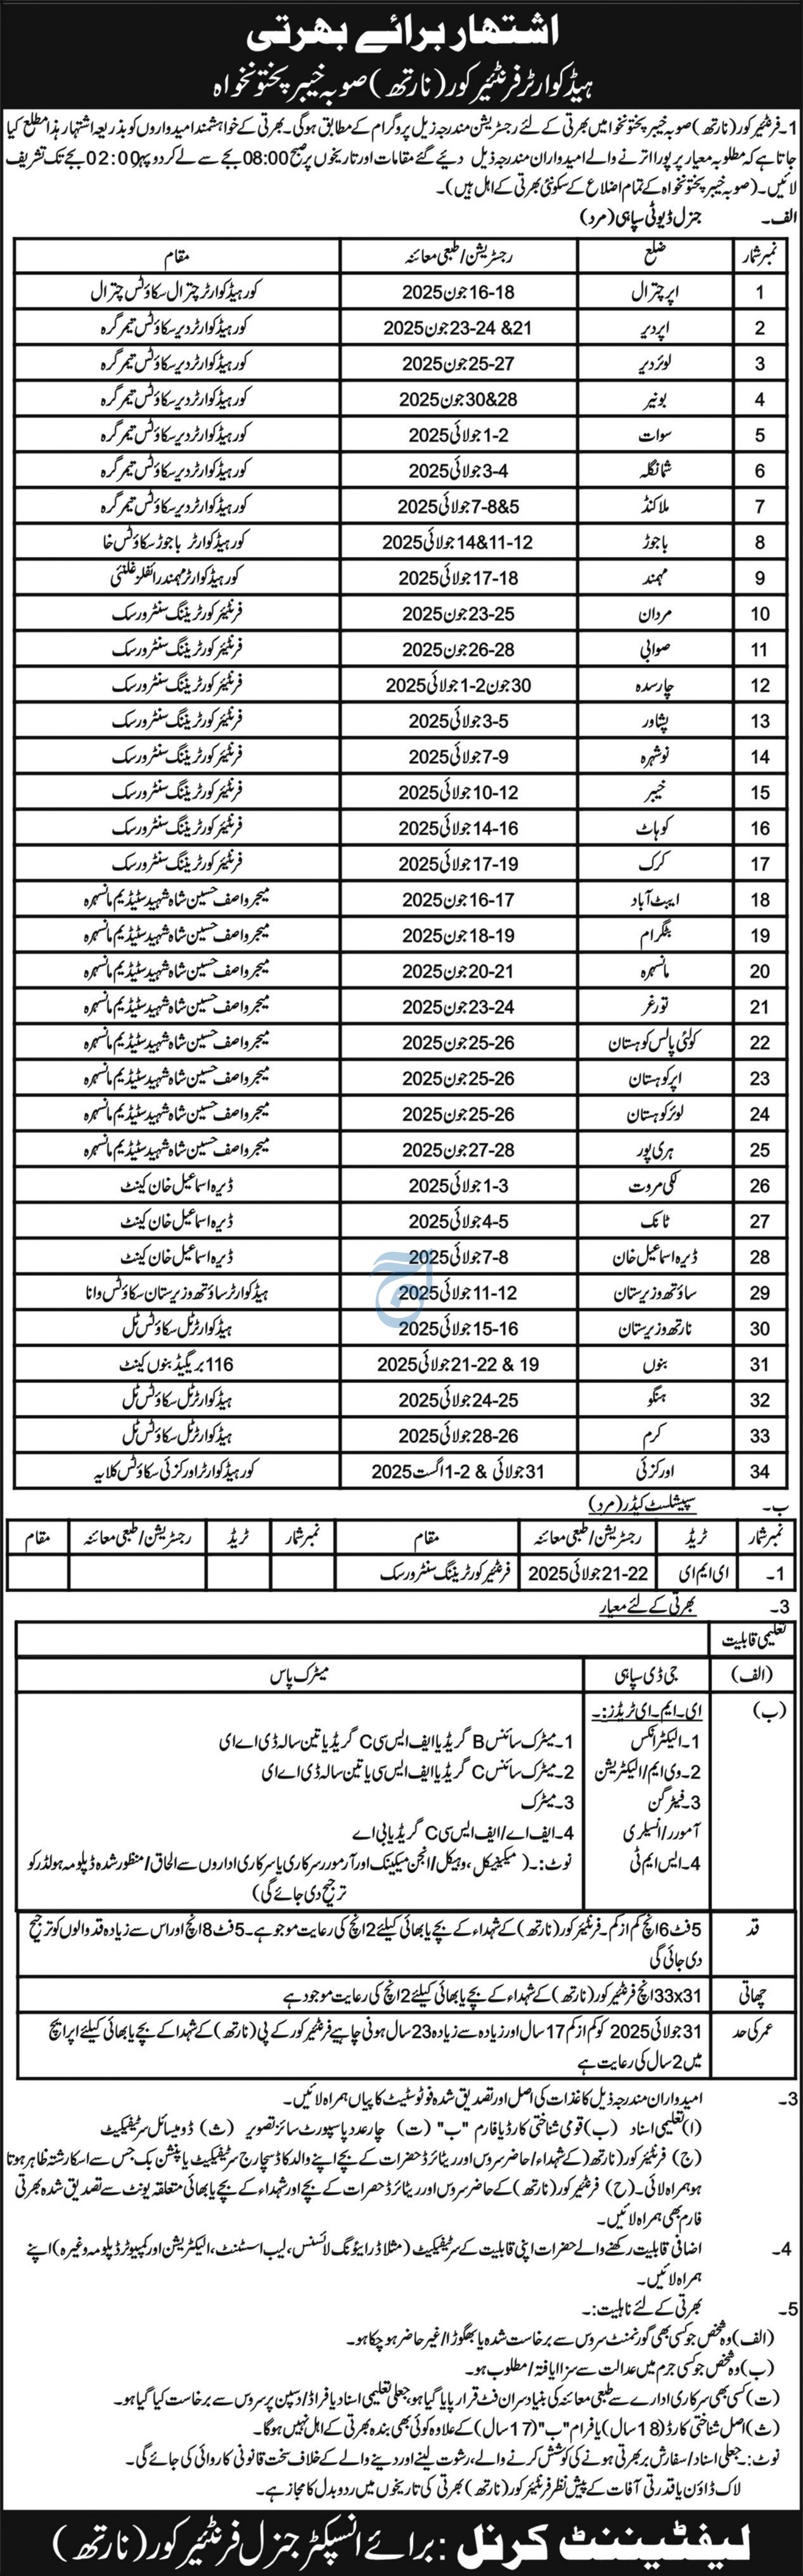 اشتہار برائے بھرتی
ہیڈکوارٹر فرنٹیئر کور (نارتھ) صوبہ خیبر پختونخواہ
1۔ فرنٹیئر کور (نارتھ) صوبہ خیبر پختونخوا میں بھرتی کے لئے رجسٹریشن مندرجہ ذیل پروگرام کے مطابق ہوگی۔ بھرتی کے خواہشمند امیدواروں کو بذریعہ اشتہار ہذا مطلع کیا
جاتا ہے کہ مطلوبہ معیار پر پورا اترنے والے امیدواران مندرجہ ذیل دیئے گئے مقامات اور تاریخوں پر صبح 08:00 بجے سے لے کر دوپہر 02:00 بجے تک تشریف
لائیں۔ (صوبہ خیبر پختونخواہ کے تمام اضلاع کے سکونتی بھرتی کے اہل ہیں)۔
الف۔ جنرل ڈیوٹی سپاہی (مرد)
نمبر شمار ضلع رجسٹریشن/طبی معائنہ مقام
1 اپر چترال 16-18 جون 2025 کور ہیڈکوارٹر چترال سکاؤٹس چترال
2 اپر دیر 21& 23-24 جون 2025 کور ہیڈکوارٹر دیر سکاؤٹس تیمرگرہ
3 لوئر دیر 25-27 جون 2025 کور ہیڈکوارٹر دیر سکاؤٹس تیمرگرہ
4 بونیر 28&30 جون 2025 کور ہیڈکوارٹر دیر سکاؤٹس تیمرگرہ
5 سوات 1-2 جولائی 2025 کور ہیڈکوارٹر دیر سکاؤٹس تیمرگرہ
6 شانگلہ 3-4 جولائی 2025 کور ہیڈکوارٹر دیر سکاؤٹس تیمرگرہ
7 ملاکنڈ 5&7-8 جولائی 2025 کور ہیڈکوارٹر دیر سکاؤٹس تیمرگرہ
8 باجوڑ 11-12&14 جولائی 2025 کور ہیڈکوارٹر باجوڑ سکاؤٹس خا
9 مہمند 17-18 جولائی 2025 کور ہیڈکوارٹر مہمند رائفلز غلنئی
10 مردان 23-25 جون 2025 فرنٹیئر کور ٹریننگ سنٹر ورسک
11 صوابی 26-28 جون 2025 فرنٹیئر کور ٹریننگ سنٹر ورسک
12 چارسدہ 30 جون 1-2 جولائی 2025 فرنٹیئر کور ٹریننگ سنٹر ورسک
13 پشاور 3-5 جولائی 2025 فرنٹیئر کور ٹریننگ سنٹر ورسک
14 نوشہرہ 7-9 جولائی 2025 فرنٹیئر کور ٹریننگ سنٹر ورسک
15 خیبر 10-12 جولائی 2025 فرنٹیئر کور ٹریننگ سنٹر ورسک
16 کوہاٹ 14-16 جولائی 2025 فرنٹیئر کور ٹریننگ سنٹر ورسک
17 کرک 17-19 جولائی 2025 فرنٹیئر کور ٹریننگ سنٹر ورسک
18 ایبٹ آباد 16-17 جون 2025 میجر واصف حسین شاہ شہید سٹیڈیم مانسہرہ
19 بٹگرام 18-19 جون 2025 میجر واصف حسین شاہ شہید سٹیڈیم مانسہرہ
20 مانسہرہ 20-21 جون 2025 میجر واصف حسین شاہ شہید سٹیڈیم مانسہرہ
21 تورغر 23-24 جون 2025 میجر واصف حسین شاہ شہید سٹیڈیم مانسہرہ
22 کولئی پالس کوہستان 25-26 جون 2025 میجر واصف حسین شاہ شہید سٹیڈیم مانسہرہ
23 اپر کوہستان 25-26 جون 2025 میجر واصف حسین شاہ شہید سٹیڈیم مانسہرہ
24 لوئر کوہستان 25-26 جون 2025 میجر واصف حسین شاہ شہید سٹیڈیم مانسہرہ
25 ہری پور 27-28 جون 2025 میجر واصف حسین شاہ شہید سٹیڈیم مانسہرہ
26 لکی مروت 1-3 جولائی 2025 ڈیرہ اسماعیل خان کینٹ
27 ٹانک 4-5 جولائی 2025 ڈیرہ اسماعیل خان کینٹ
28 ڈیرہ اسماعیل خان 7-8 جولائی 2025 ڈیرہ اسماعیل خان کینٹ
29 ساؤتھ وزیرستان 11-12 جولائی 2025 ہیڈکوارٹر ساؤتھ وزیرستان سکاؤٹس وانا
30 نارتھ وزیرستان 15-16 جولائی 2025 ہیڈکوارٹر ٹل سکاؤٹس ٹل
31 بنوں 19 & 21-22 جولائی 2025 116 بریگیڈ بنوں کینٹ
32 ہنگو 24-25 جولائی 2025 ہیڈکوارٹر ٹل سکاؤٹس ٹل
33 کرم 26-28 جولائی 2025 ہیڈکوارٹر ٹل سکاؤٹس ٹل
34 اورکزئی 31 جولائی & 1-2 اگست 2025 کور ہیڈکوارٹر اورکزئی سکاؤٹس کلایہ
ب۔ سپیشلسٹ کیڈر (مرد)
نمبر شمار ٹریڈ رجسٹریشن/طبی معائنہ مقام نمبر شمار ٹریڈ رجسٹریشن/طبی معائنہ مقام
1۔ ای ایم ای 21-22 جولائی 2025 فرنٹیئر کور ٹریننگ سنٹر ورسک
3۔ بھرتی کے لئے معیار
تعلیمی قابلیت
(الف) جی ڈی سپاہی میٹرک پاس
(ب) ای۔ایم۔ای ٹریڈز:۔
1۔الیکٹرانکس 1۔میٹرک سائنس B گریڈ یا ایف ایس سی C گریڈ یا تین سالہ ڈی اے ای
2۔وی ایم/الیکٹریشن 2۔میٹرک سائنس C گریڈ یا ایف ایس سی یا تین سالہ ڈی اے ای
3۔فیٹر گن 3۔میٹرک
آمورر/انسیلری 4۔ایف اے/ایف ایس سی C گریڈ یا بی اے
4۔ایس ایم ٹی نوٹ:۔ (میکینیکل، وہیکل/انجن میکینک اور آرمورر سرکاری یا سرکاری اداروں سے الحاق/منظور شدہ ڈپلومہ ہولڈر کو
ترجیح دی جائے گی)
قد 5 فٹ 6 انچ کم از کم۔ فرنٹیئر کور (نارتھ) کے شہداء کے بچے یا بھائی کیلئے 2 انچ کی رعایت موجود ہے۔ 5 فٹ 8 انچ اور اس سے زیادہ قد والوں کو ترجیح
دی جائی گی
چھاتی 33x31 انچ فرنٹیئر کور (نارتھ) کے شہداء کے بچے یا بھائی کیلئے 2 انچ کی رعایت موجود ہے
عمر کی حد 31 جولائی 2025 کو کم از کم 17 سال اور زیادہ سے زیادہ 23 سال ہونی چاہیے فرنٹیئر کور کے پی (نارتھ) کے شہدا کے بچے یا بھائی کیلئے اپر ایج
میں 2 سال کی رعایت ہے
3۔ امیدواران مندرجہ ذیل کاغذات کی اصل اور تصدیق شدہ فوٹوسٹیٹ کاپیاں ہمراہ لائیں۔
(ا) تعلیمی اسناد (ب) قومی شناختی کارڈ یا فارم "ب" (ت) چار عدد پاسپورٹ سائز تصویر (ث) ڈومیسائل سرٹیفکیٹ
(ج) فرنٹیئر کور (نارتھ) کے شہداء/حاضر سروس اور ریٹائرڈ حضرات کے بچے اپنے والد کا ڈسچارج سرٹیفکیٹ یا پنشن بک جس سے اسکا رشتہ ظاہر ہوتا
ہو ہمراہ لائی۔ (ح) فرنٹیئر کور (نارتھ) کے حاضر سروس اور ریٹائرڈ حضرات کے بچے اور شہداء کے بچے یا بھائی متعلقہ یونٹ سے تصدیق شدہ بھرتی
فارم بھی ہمراہ لائیں۔
4۔ اضافی قابلیت رکھنے والے حضرات اپنی قابلیت کے سرٹیفکیٹ (مثلاً ڈرائیونگ لائسنس، لیب اسسٹنٹ، الیکٹریشن اور کمپیوٹر ڈپلومہ وغیرہ) اپنے
ہمراہ لائیں۔
5۔ بھرتی کے لئے ناہلیت:۔
(الف) وہ شخص جو کسی بھی گورنمنٹ سروس سے برخاست شدہ یا بھگوڑا/غیر حاضر ہو چکا ہو۔
(ب) وہ شخص جو کسی جرم میں عدالت سے سزا یافتہ/مطلوب ہو۔
(ت) کسی بھی سرکاری ادارے سے طبی معائنہ کی بنیاد پر ان فٹ قرار پایا گیا ہو، جعلی تعلیمی اسناد یا فراڈ/ڈسپلن پر سروس سے برخاست کیا گیا ہو۔
(ث) اصل شناختی کارڈ (18 سال) یا فرام "ب" (17 سال) کے علاوہ کوئی بھی بندہ بھرتی کے اہل نہیں ہو گا۔
نوٹ:۔ جعلی اسناد/سفارش پر بھرتی ہونے کی کوشش کرنے والے، رشوت لینے اور دینے والے کے خلاف سخت قانونی کاروائی کی جائے گی۔
لاک ڈاؤن یا قدرتی آفات کے پیش نظر فرنٹیئر کور (نارتھ) بھرتی کی تاریخوں میں ردوبدل کا مجاز ہے۔
لیفٹیننٹ کرنل: برائے انسپکٹر جنرل فرنٹیئر کور (نارتھ)